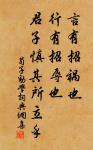 言有招禍也
行有招辱也
君子慎其所立乎
荀子勸學詞典網集